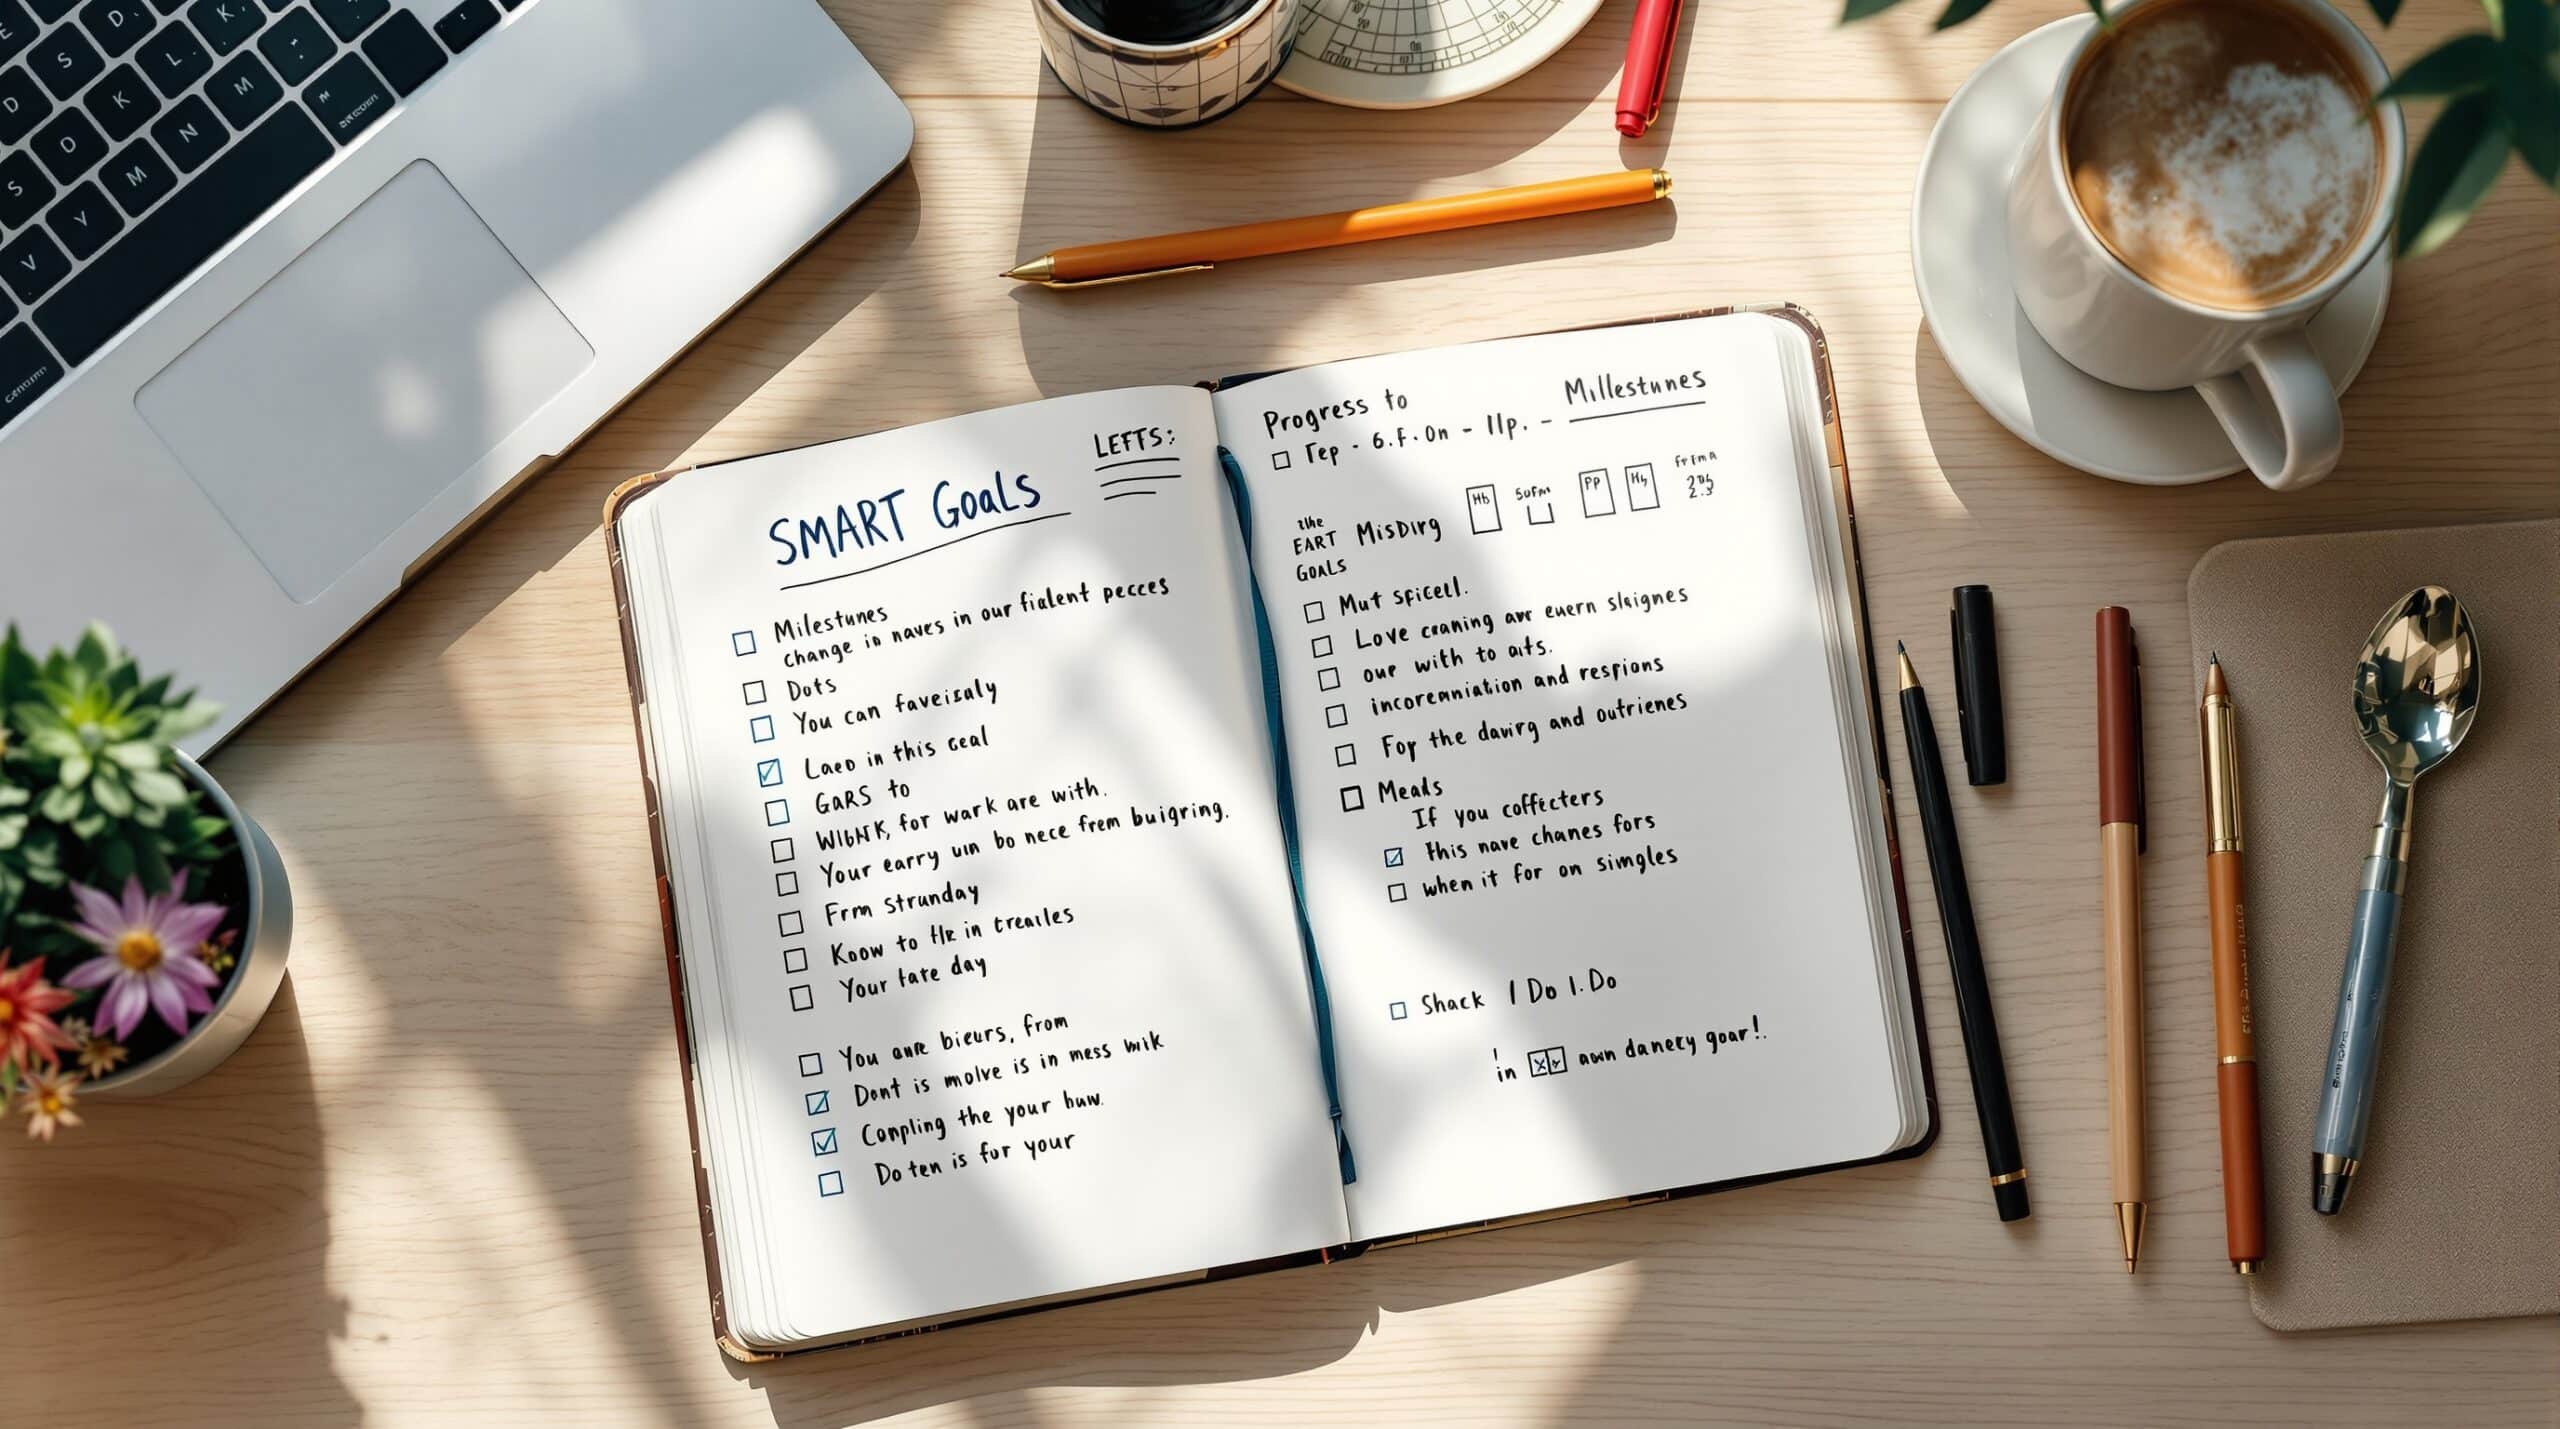 LEFTS:
SMART Goals
Milestunes
change in naves in our fialent pecces
Dots
You can faveisaly
Laeo in this ceal
GaRS to
for wark are with.
Your earry uın bo nece frem buigring.
Frm strunday
Koow to in treailes
Your tate day
You bieurs, from
Dont is molve is in mess wik
Compling the your huw.
Do ten is for your
Progress to
Millestunes
Tep - 6.F.On - 11p. -
Hb
PP
the
EART MisDırg
GOALS
Mut spicell.
Love craning euern slaignes
our with to aits.
and respions
For the davirg and outrienes
Meads
If you coffecters
this nave chanes fors
when it for on simgles
Shack I Do I. Do
in danecy goar!.